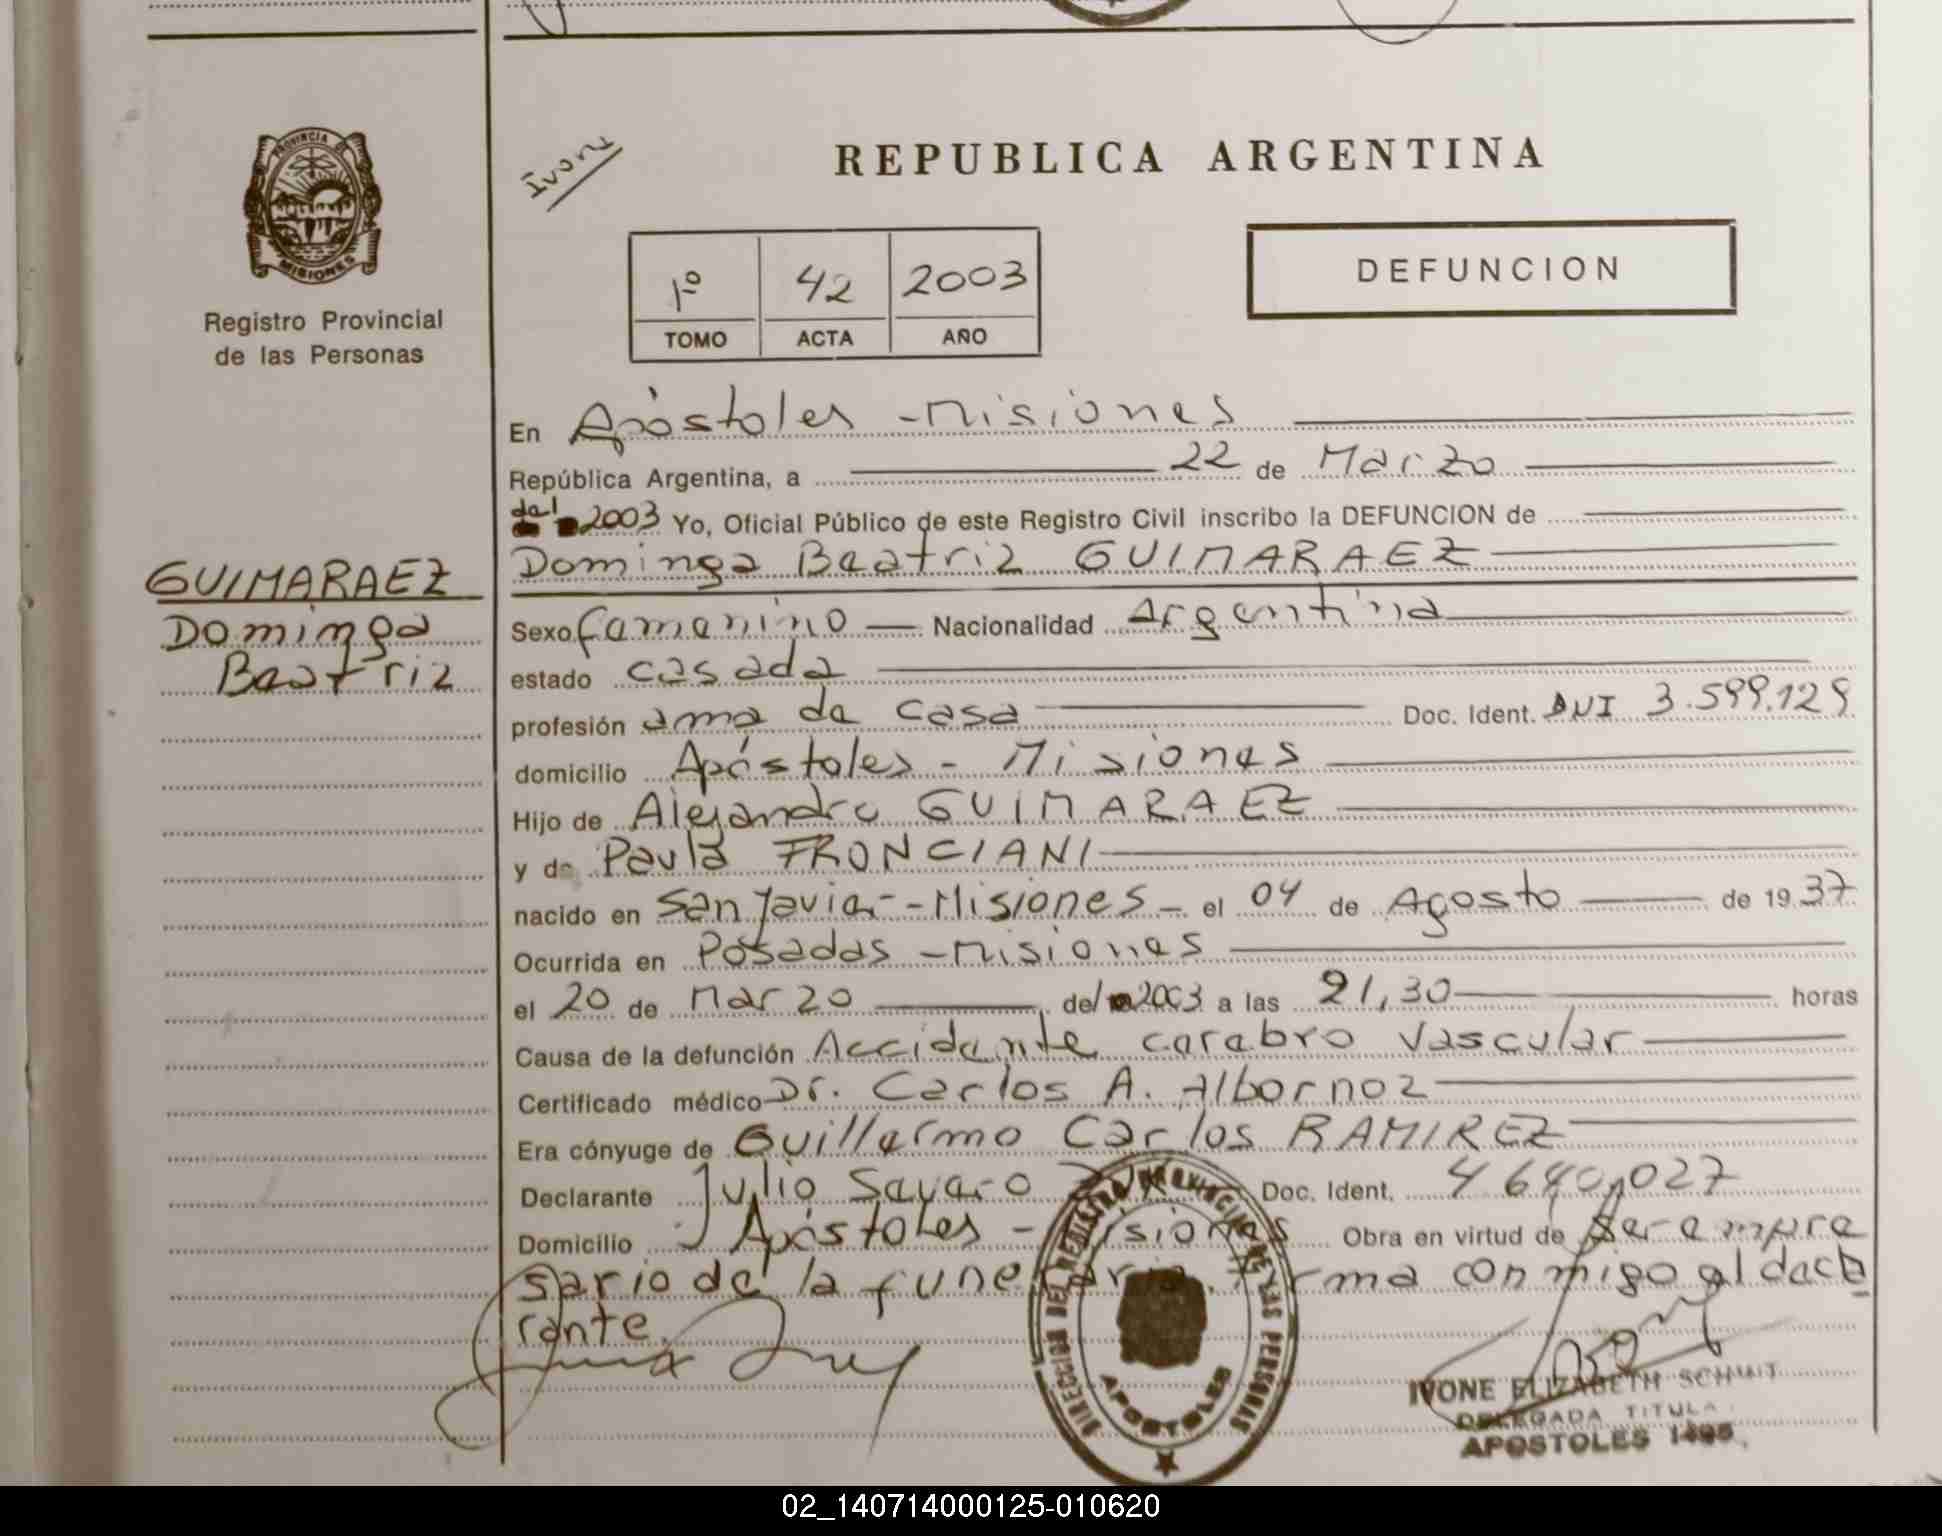 PROVINCIA DE
MISIONES
Registro Provincial
de las Personas
Ivone
REPUBLICA ARGENTINA
1º 42 2003
TOMO ACTA AÑO
DEFUNCION
En Apóstoles - Misiones
República Argentina, a 22 de Marzo
del 2003 Yo, Oficial Público de este Registro Civil inscribo la DEFUNCION de
Dominga Beatriz GUIMARAEZ
GUIMARAEZ
Dominga
Beatriz
Sexo femenino Nacionalidad Argentina
estado casada
profesión ama de casa Doc. Ident. DNI 3.599.129
domicilio Apóstoles - Misiones
Hijo de Alejandro GUIMARAEZ
y de Paula FRONCIANI
nacido en San Javier - Misiones - el 04 de Agosto de 1937
Ocurrida en Posadas - Misiones
el 20 de Marzo del 2003 a las 21,30 horas
Causa de la defunción Accidente cerebro vascular
Certificado médico Dr. Carlos A. Albornoz
Era cónyuge de Guillermo Carlos RAMIREZ
Declarante Julio Savaro Doc. Ident. 4640,027
Domicilio Apóstoles - Misiones Obra en virtud de ser empre
sario de la funeraria. Firma conmigo el decla
rante.
DIRECCION DEL REGISTRO PROVINCIAL DE LAS PERSONAS
APOSTOLES
IVONE ELIZABETH SCHMIT
DELEGADA TITULAR
APOSTOLES
02_140714000125-010620